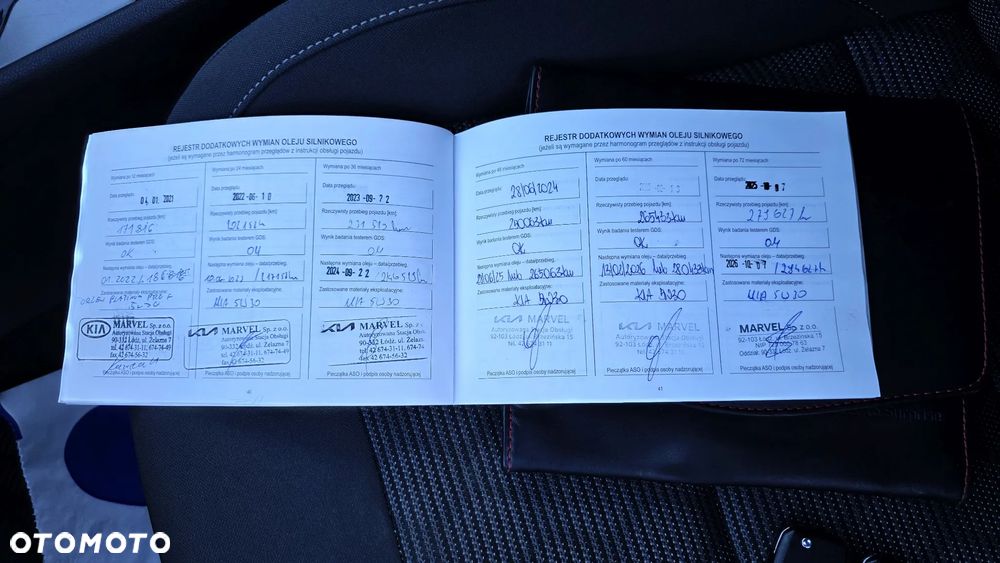 REJESTR DODATKOWYCH WYMIAN OLEJU SILNIKOWEGO
(jeżeli są wymagane przez harmonogram przeglądów z instrukcji obsługi pojazdu)
Wymiana po 12 miesiącach
Data przeglądu:
04. 01. 2021
Rzeczywisty przebieg pojazdu [km]:
171 816
Wynik badania testerem GDS:
OK
Następna wymiana oleju – data/przebieg.
01.2022 /
Zastosowane materiały eksploatacyjne:
ORLEN PLATINUM
5W30
KIA MARVEL Sp. z o.o.
Autoryzowana Stacja Obsługi
90-332 Łódź, ul. Żelazna 7
tel. 42 674-31-11, 674-74-49
fax 42 674-56-32
Pieczątka ASO i podpis osoby nadzorującej
Wymiana po 24 miesiącach
Data przeglądu:
2022 -06- 10
Rzeczywisty przebieg pojazdu [km]:
Wynik badania testerem GDS:
OK
Następna wymiana oleju – data/przebieg.
Zastosowane materiały eksploatacyjne:
KIA 5W30
KIA MARVEL Sp. z o.o.
Autoryzowana Stacja Obsługi
90-332 Łódź, ul. Żelazna 7
tel. 42 674-31-11, 674-74-49
fax 42 674-56-32
Pieczątka ASO i podpis osoby nadzorującej
Wymiana po 36 miesiącach
Data przeglądu:
2023 -09- 22
Rzeczywisty przebieg pojazdu [km]:
Wynik badania testerem GDS:
OK
Następna wymiana oleju – data/przebieg.
2024 -09- 22
Zastosowane materiały eksploatacyjne:
KIA 5W30
KIA MARVEL Sp. z o.o.
Autoryzowana Stacja Obsługi
90-332 Łódź, ul. Żelazna 7
tel. 42 674-31-11, 674-74-49
fax 42 674-56-32
Pieczątka ASO i podpis osoby nadzorującej
40
REJESTR DODATKOWYCH WYMIAN OLEJU SILNIKOWEGO
(jeżeli są wymagane przez harmonogram przeglądów z instrukcji obsługi pojazdu)
Wymiana po 48 miesiącach
Data przeglądu:
28/06/2024
Rzeczywisty przebieg pojazdu [km]:
Wynik badania testerem GDS:
OK
Następna wymiana oleju – data/przebieg.
lub 265063km
Zastosowane materiały eksploatacyjne:
KIA 5W30
KIA MARVEL
Autoryzowana Stacja Obsługi
92-103 Łódź, ul. Brzezińska 15
Pieczątka ASO i podpis osoby nadzorującej
Wymiana po 60 miesiącach
Data przeglądu:
Rzeczywisty przebieg pojazdu [km]:
265433km
Wynik badania testerem GDS:
OK
Następna wymiana oleju – data/przebieg.
13/02/2026 lub 280433km
Zastosowane materiały eksploatacyjne:
KIA 5W30
KIA MARVEL
Autoryzowana Stacja Obsługi
92-103 Łódź, ul. Brzezińska 15
Pieczątka ASO i podpis osoby nadzorującej
Wymiana po 72 miesiącach
Data przeglądu:
Rzeczywisty przebieg pojazdu [km]:
279627km
Wynik badania testerem GDS:
OK
Następna wymiana oleju – data/przebieg.
Zastosowane materiały eksploatacyjne:
KIA 5W30
MARVEL Sp. z o.o.
92-103 Łódź, ul. Brzezińska 15
Oddział: 90-332 Łódź, ul. Żelazna 7
Pieczątka ASO i podpis osoby nadzorującej
41
OTOMOTO